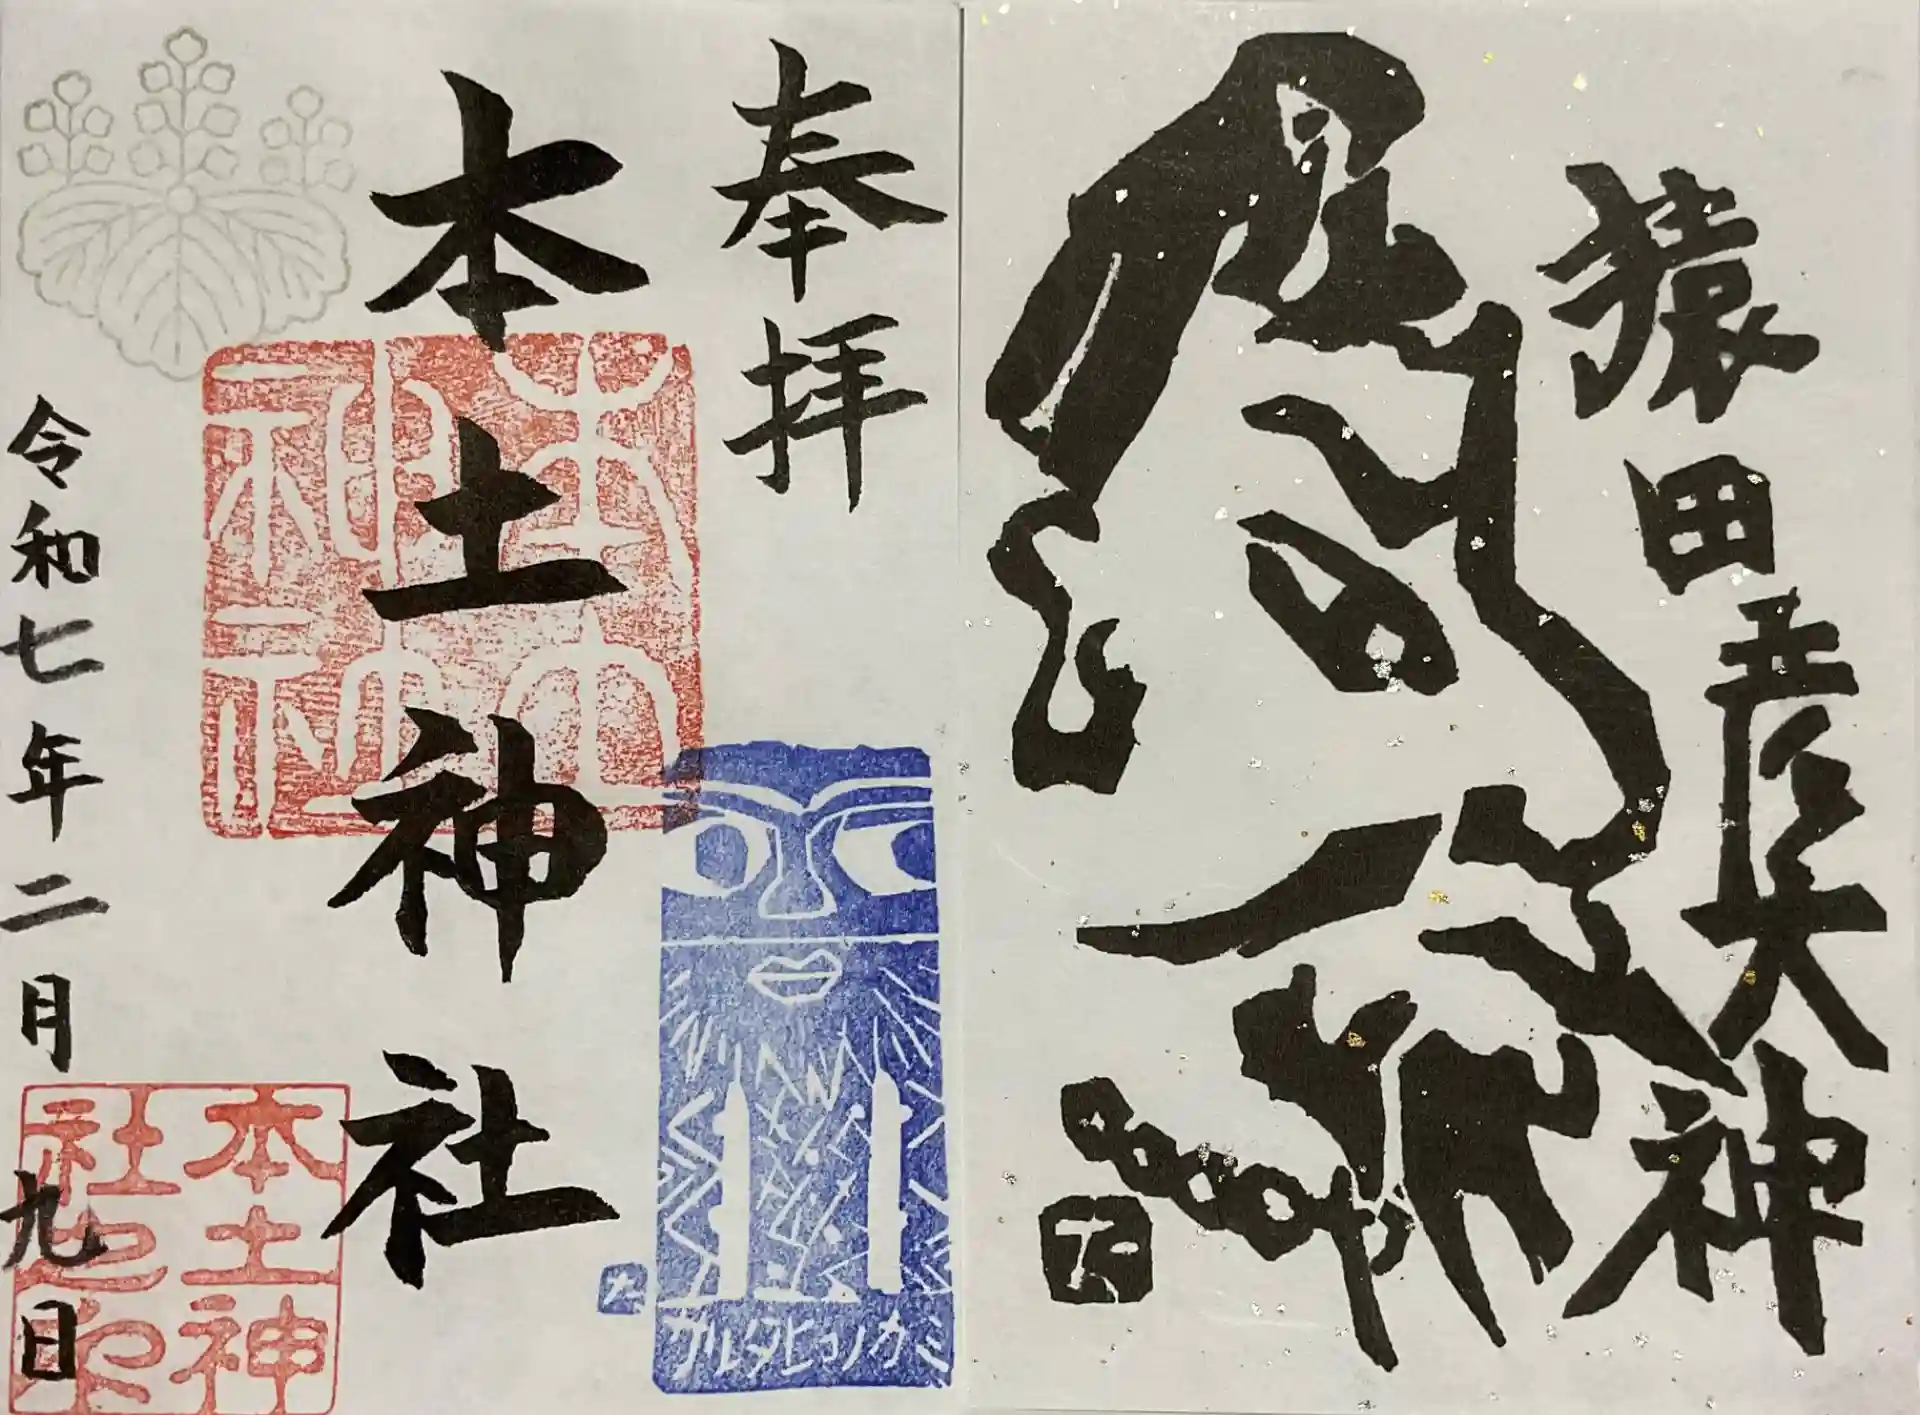 猿田彦大神
奉拝
本土神社
サルタヒコノカミ
令和七年二月九日
本土神
社之印